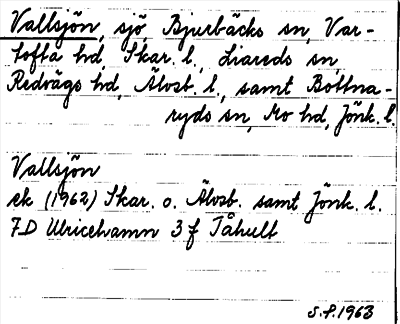 Vallsjön, sjö, Bjurbäcks sn, Var-
tofta hd, Skar. l., Liareds sn,
Redvägs hd, Älvsb. l., samt Bottna-
ryds sn, Mo hd, Jönk. l.
Vallsjön
ek (1962) Skar. o. Älvsb. samt Jönk. l.
7D Ulricehamn 3 f Tåhult
S.P. 1963